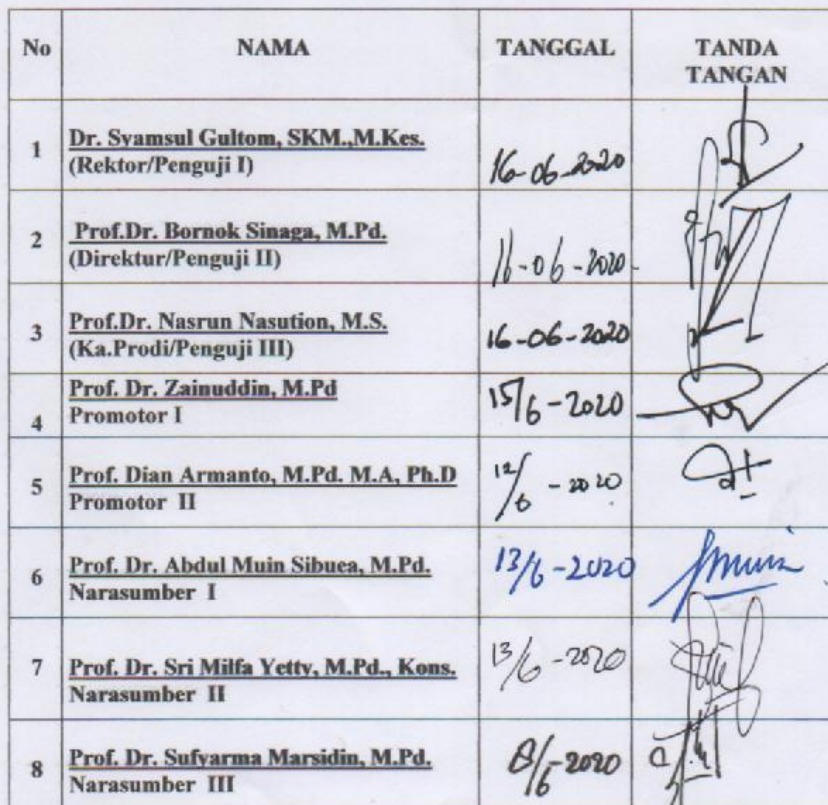 No NAMA TANGGAL TANDA
TANGAN
1 Dr. Syamsul Gultom, SKM.,M.Kes.
(Rektor/Penguji I) 16-06-2020
2 Prof.Dr. Bornok Sinaga, M.Pd.
(Direktur/Penguji II) 16-06-2020
3 Prof.Dr. Nasrun Nasution, M.S.
(Ka.Prodi/Penguji III) 16-06-2020
4 Prof. Dr. Zainuddin, M.Pd
Promotor I 15/6-2020
5 Prof. Dian Armanto, M.Pd. M.A, Ph.D
Promotor II 12/6-2020
6 Prof. Dr. Abdul Muin Sibuea, M.Pd.
Narasumber I 13/6-2020
7 Prof. Dr. Sri Milfa Yetty, M.Pd., Kons.
Narasumber II 13/6-2020
8 Prof. Dr. Sufyarma Marsidin, M.Pd.
Narasumber III 8/6-2020